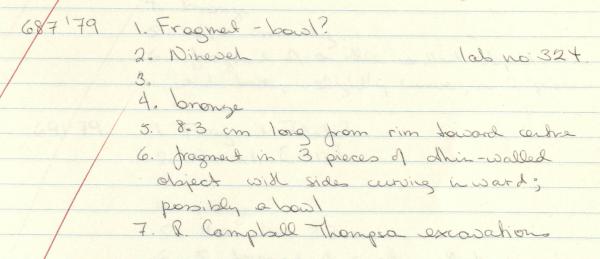 687'79 1. Fragment - bowl?
2. Nineveh lab no 324.
3.
4. bronze
5. 8.3 cm long from rim toward centre
6. fragment in 3 pieces of thin-walled
object with sides curving inward;
possibly a bowl
7. R. Campbell Thompson excavations